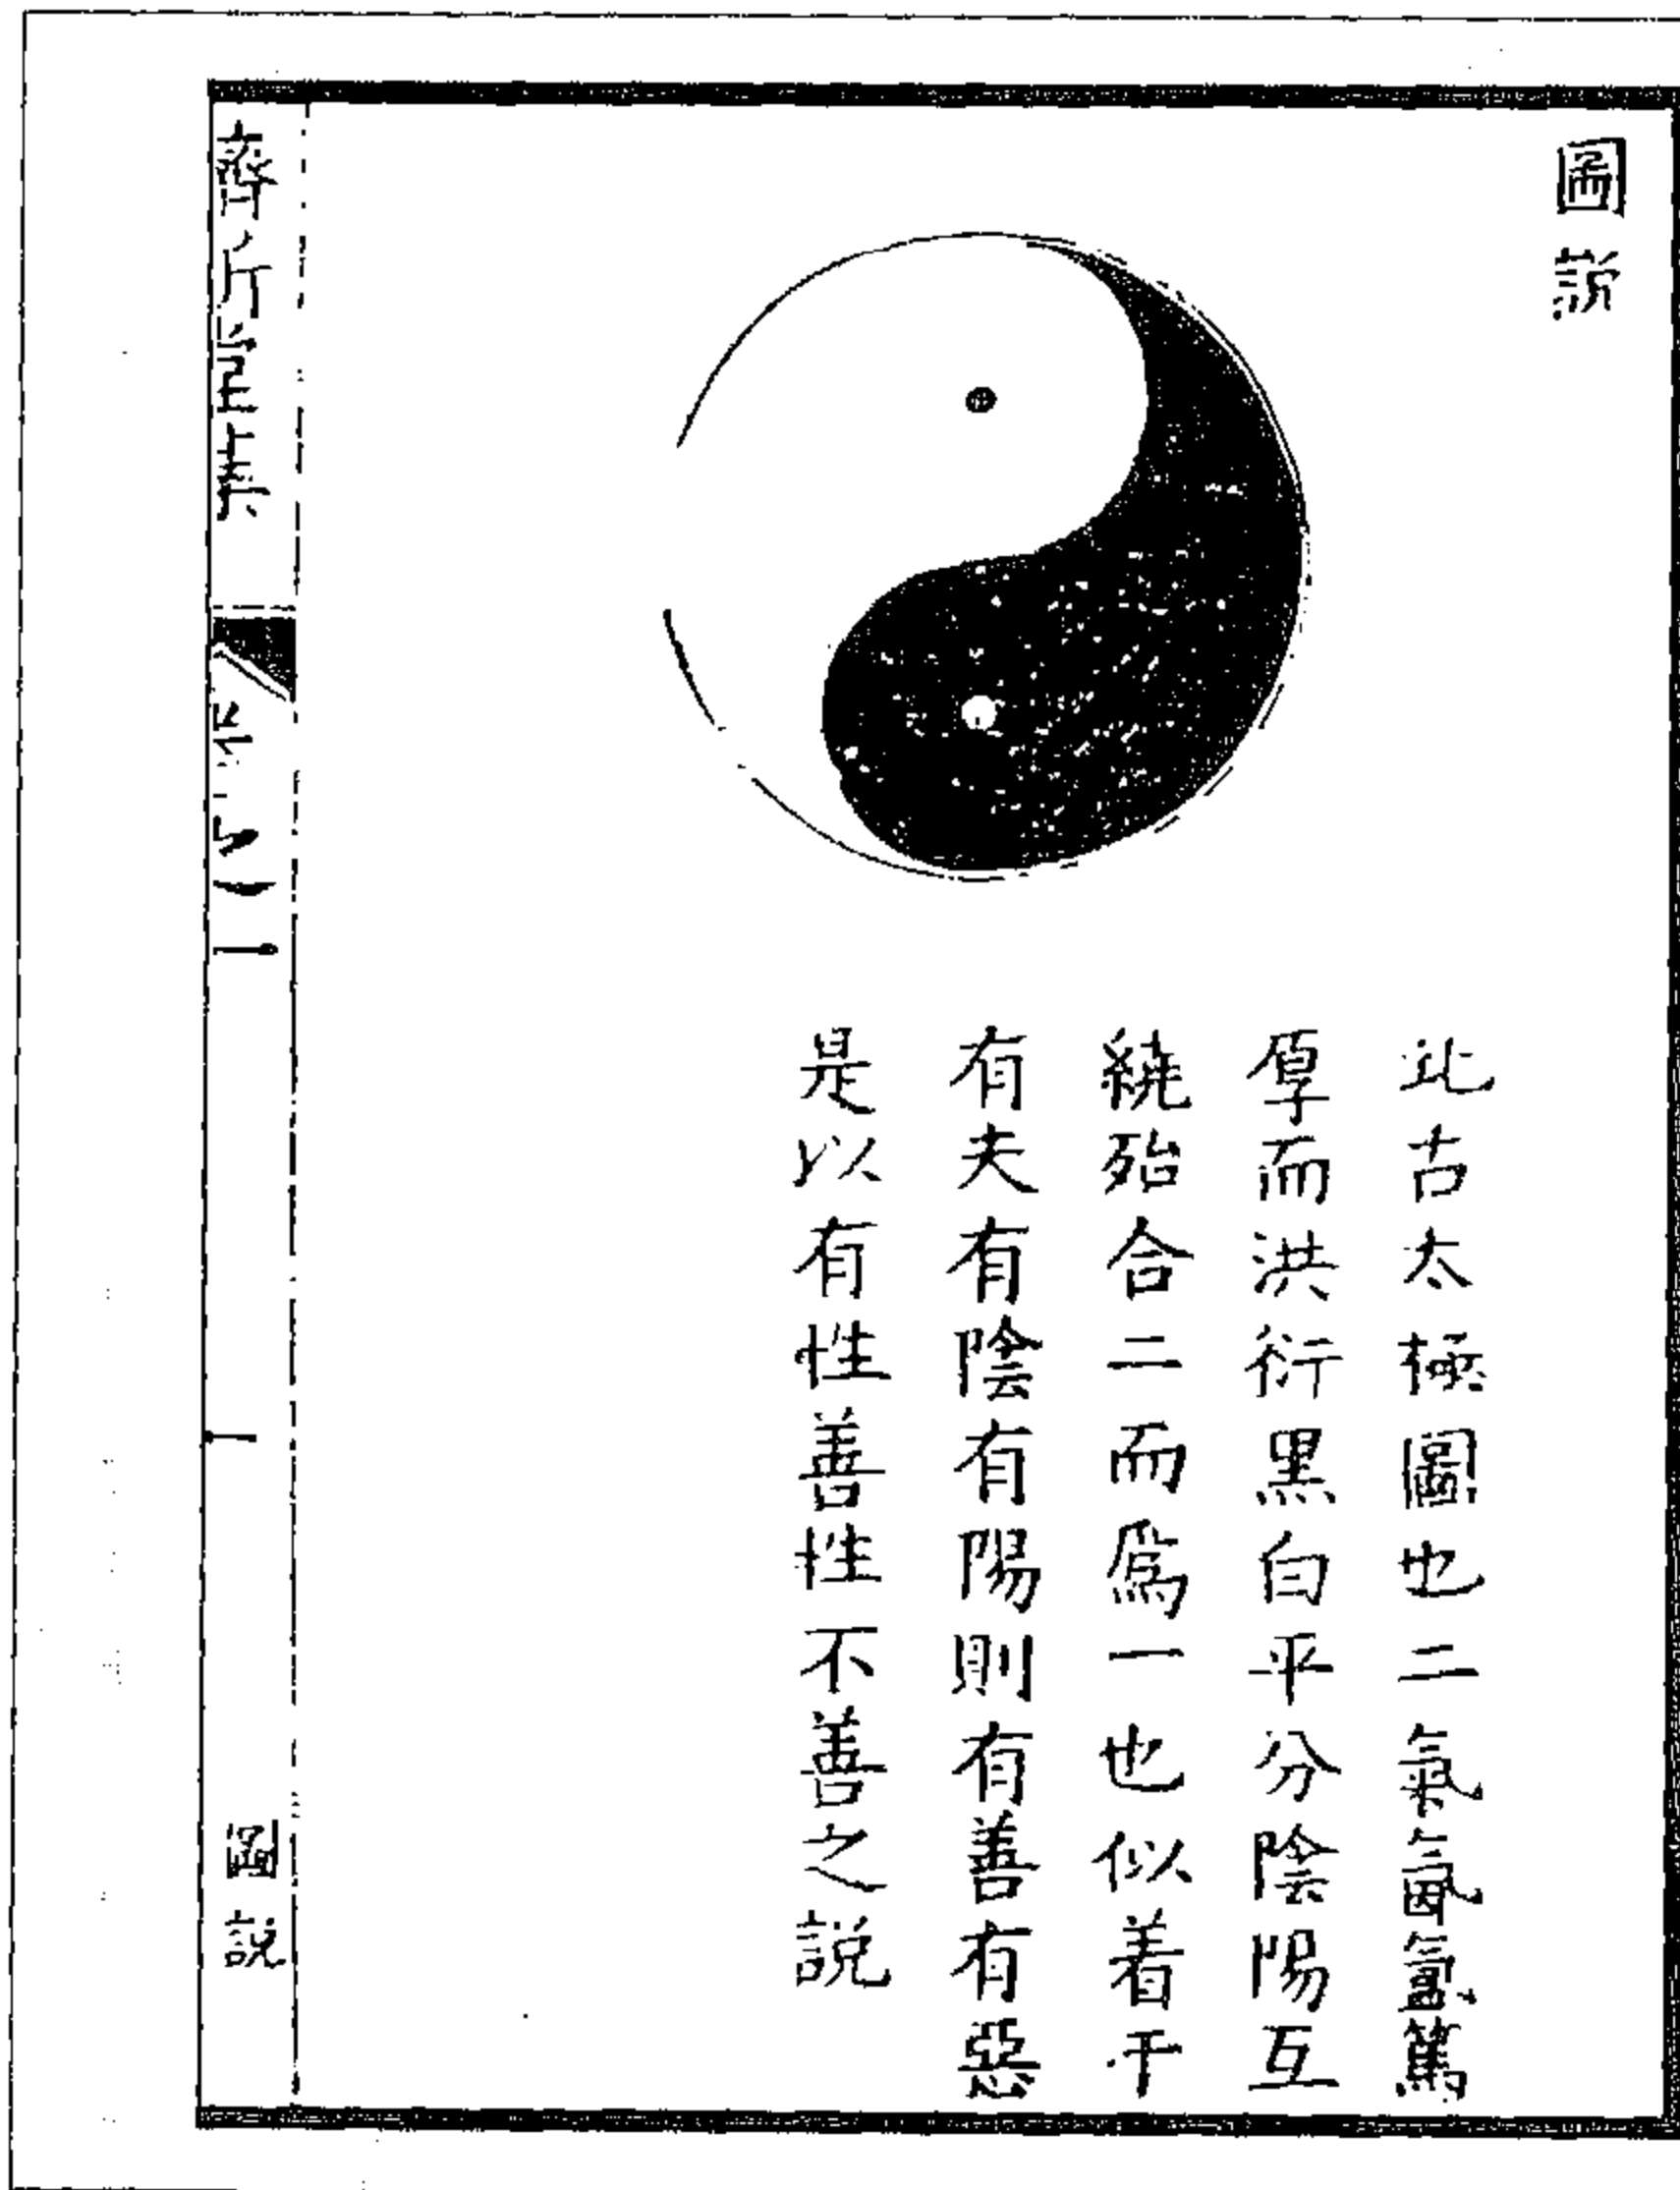 圖説
此古太極圖也二氣氤氳篤
厚而洪衍黑白平分陰陽互
繞殆合二而爲一也似着于
有夫有陰有陽則有善有惡
是以有性善性不善之説
圖説